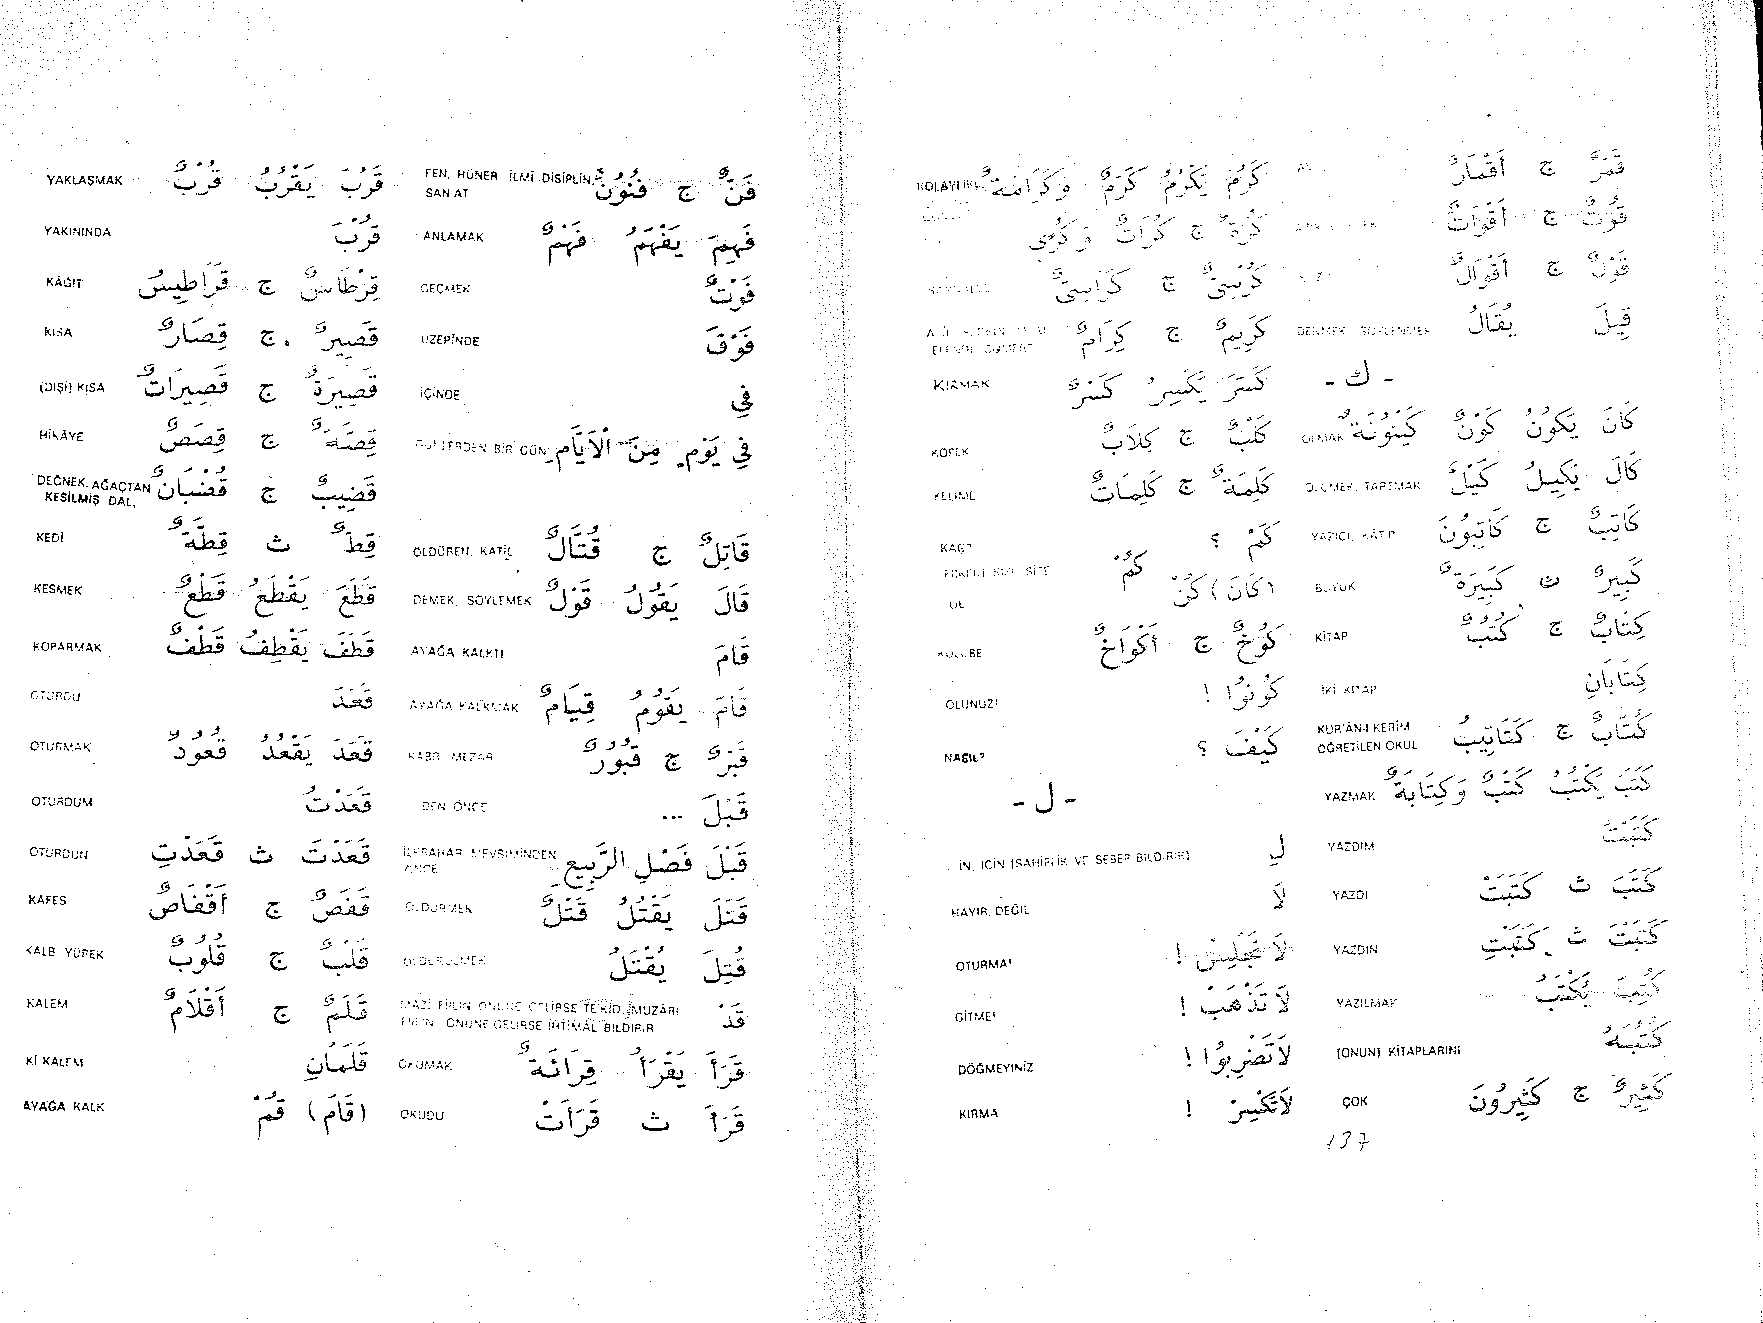 فَنٌّ ج فُنُونٌ FEN, HÜNER İLMİ DİSİPLİN, SANAT
فَهِمَ يَفْهَمُ فَهْمٌ ANLAMAK
فَوْتٌ GEÇMEK
فَوْقَ ÜZERİNDE
فِي İÇİNDE
فِي يَوْمٍ مِنَ الْاَيَّامِ GÜNLERDEN BİR GÜN
قَاتِلٌ ج قُتَّالٌ ÖLDÜREN, KATİL
قَالَ يَقُولُ قَوْلٌ DEMEK, SÖYLEMEK
قَامَ AYAĞA KALKTI
قَامَ يَقُومُ قِيَامٌ AYAĞA KALKMAK
قَبْرٌ ج قُبُورٌ KABR MEZAR
قَبْلَ ... DEN ÖNCE
قَبْلَ فَصْلِ الرَّبِيعِ İLKBAHAR MEVSİMİNDEN ÖNCE
قَتَلَ يَقْتُلُ قَتْلٌ ÖLDÜRMEK
قُتِلَ يُقْتَلُ ÖLDÜRÜLMEK
قَدْ MAZİ FİİLİN ÖNÜNE GELİRSE TE'KİD, MUZARİ
FİİLİN ÖNÜNE GELİRSE İHTİMAL BİLDİRİR
قَرَأَ يَقْرَأُ قِرَائَةٌ OKUMAK
قَرَأَ ث قَرَأَتْ OKUDU
قَرُبَ يَقْرُبُ قُرْبٌ YAKLAŞMAK
قُرْبَ YAKININDA
قِرْطَاسٌ ج قَرَاطِيسُ KÂĞIT
قَصِيرٌ ج قِصَارٌ KISA
قَصِيرَةٌ ج قَصِيرَاتٌ (DİŞİ) KISA
قِصَّةٌ ج قِصَصٌ HİKÂYE
قَضِيبٌ ج قُضْبَانٌ DEĞNEK, AĞAÇTAN KESİLMİŞ DAL,
قِطٌّ ث قِطَّةٌ KEDİ
قَطَعَ يَقْطَعُ قَطْعٌ KESMEK
قَطَفَ يَقْطِفُ قَطْفٌ KOPARMAK
قَعَدَ OTURDU
قَعَدَ يَقْعُدُ قُعُودٌ OTURMAK
قَعَدْتُ OTURDUM
قَعَدْتَ ث قَعَدْتِ OTURDUN
قَفَصٌ ج أَقْفَاصٌ KAFES
قَلْبٌ ج قُلُوبٌ KALB YÜREK
قَلَمٌ ج أَقْلَامٌ KALEM
قَلَمَانِ Kİ KALEM
(قَامَ) قُمْ AYAĞA KALK
قَمَرٌ ج أَقْمَارٌ
قُوتٌ ج أَقْوَاتٌ
قَوْلٌ ج أَقْوَالٌ
قِيلَ يُقَالُ DENMEK, SÖYLENMEK
- ك -
كَانَ يَكُونُ كَوْنٌ كَيْنُونَةٌ OLMAK
كَالَ يَكِيلُ كَيْلٌ ÖLÇMEK, TARTMAK
كَاتِبٌ ج كَاتِبُونَ YAZICI, KÂTİP
كَبِيرٌ ث كَبِيرَةٌ BÜYÜK
كِتَابٌ ج كُتُبٌ KİTAP
كِتَابَانِ İKİ KİTAP
كُتَّابٌ ج كَتَاتِيبُ KUR'ÂN-I KERİM ÖĞRETİLEN OKUL
كَتَبَ يَكْتُبُ كَتْبٌ وَكِتَابَةٌ YAZMAK
كَتَبْتُ YAZDIM
كَتَبَ ث كَتَبَتْ YAZDI
كَتَبْتَ ث كَتَبْتِ YAZDIN
كُتِبَ يُكْتَبُ YAZILMAK
كُتُبَهُ (ONUN) KİTAPLARINI
كَثِيرٌ ج كَثِيرُونَ ÇOK
137
كَرُمَ يَكْرُمُ كَرَمٌ وَكَرَامَةٌ
كُرَةٌ ج كُرَاتٌ وَكُرًى
كُرْسِيٌّ ج كَرَاسِيُّ
كَرِيمٌ ج كِرَامٌ
كَسَرَ يَكْسِرُ كَسْرٌ KIRMAK
كَلْبٌ ج كِلَابٌ KÖPEK
كَلِمَةٌ ج كَلِمَاتٌ KELİME
كَمْ ؟ KAÇ?
كُمْ
(كَانَ) كُنْ OL
كُوخٌ ج أَكْوَاخٌ KULÜBE
كُونُوا ! OLUNUZ!
كَيْفَ ؟ NASIL?
- ل -
لِ İN, İÇİN (SAHİPLİK VE SEBEP BİLDİRİR)
لاَ HAYIR, DEĞİL
لاَ تَجْلِسْ ! OTURMA!
لاَ تَذْهَبْ ! GİTME!
لاَ تَضْرِبُوا ! DÖĞMEYİNİZ
لاَ تَكْسِرْ ! KIRMA